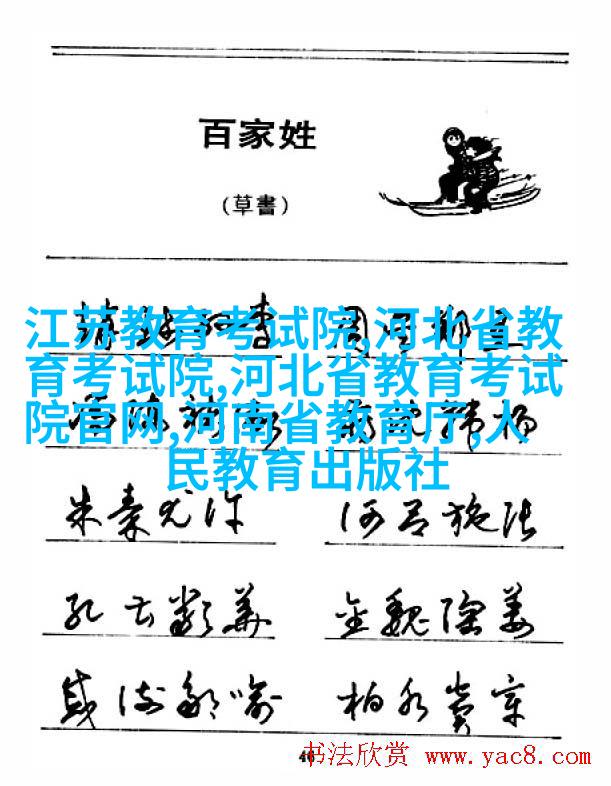 百家姓
(草書)
江苏教育考试院,河北省教
育考试院,河北省教育考试
院官网,河南省教育厅,人
民教育出版社
朱秦尤许 何吕施张
孔曹严华 金魏陶姜
戚谢邹喻 柏水窦章
46
书法欣赏 www.yac8.com